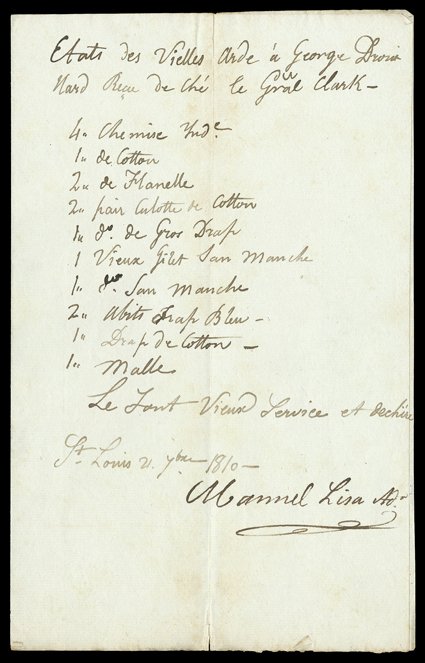 Etats des Vielles Arde à George Drouil
Nard Reçu de Ché le Gral Clark -
4" Chemise Inde
1" de Cotton
2" de Flanelle
2" pair Culotte de Cotton
1" do. de Gros Drap
1 Vieux Gilet San Manche
1" do. San Manche
2" Abits Drap Bleu -
1" Drap de Cotton -
1" Malle
Le Tout Vieux Service et dechiré
St. Louis 21 7bre 1810 -
Manuel Lisa Adr